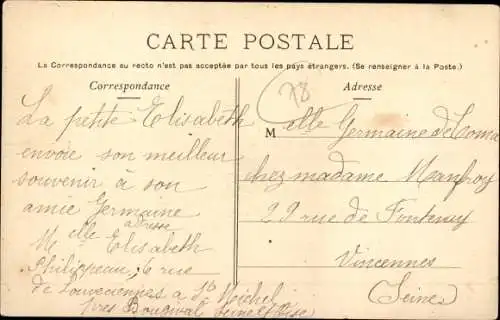 CARTE POSTALE
La Correspondance au recto n'est pas acceptée par tous les pays étrangers. (Se renseigner à la Poste.)
Correspondance
La petite Elisabeth
envoie son meilleur
souvenir à son
amie Germaine
adresse
Melle Elisabeth
Philippeau, 6 rue
de Louveciennes a St Michel
près Bougival Seine et Oise
78
Adresse
Melle Germaine de
chez madame Manfroy
29 rue de Fontenay
Vincennes
(Seine)